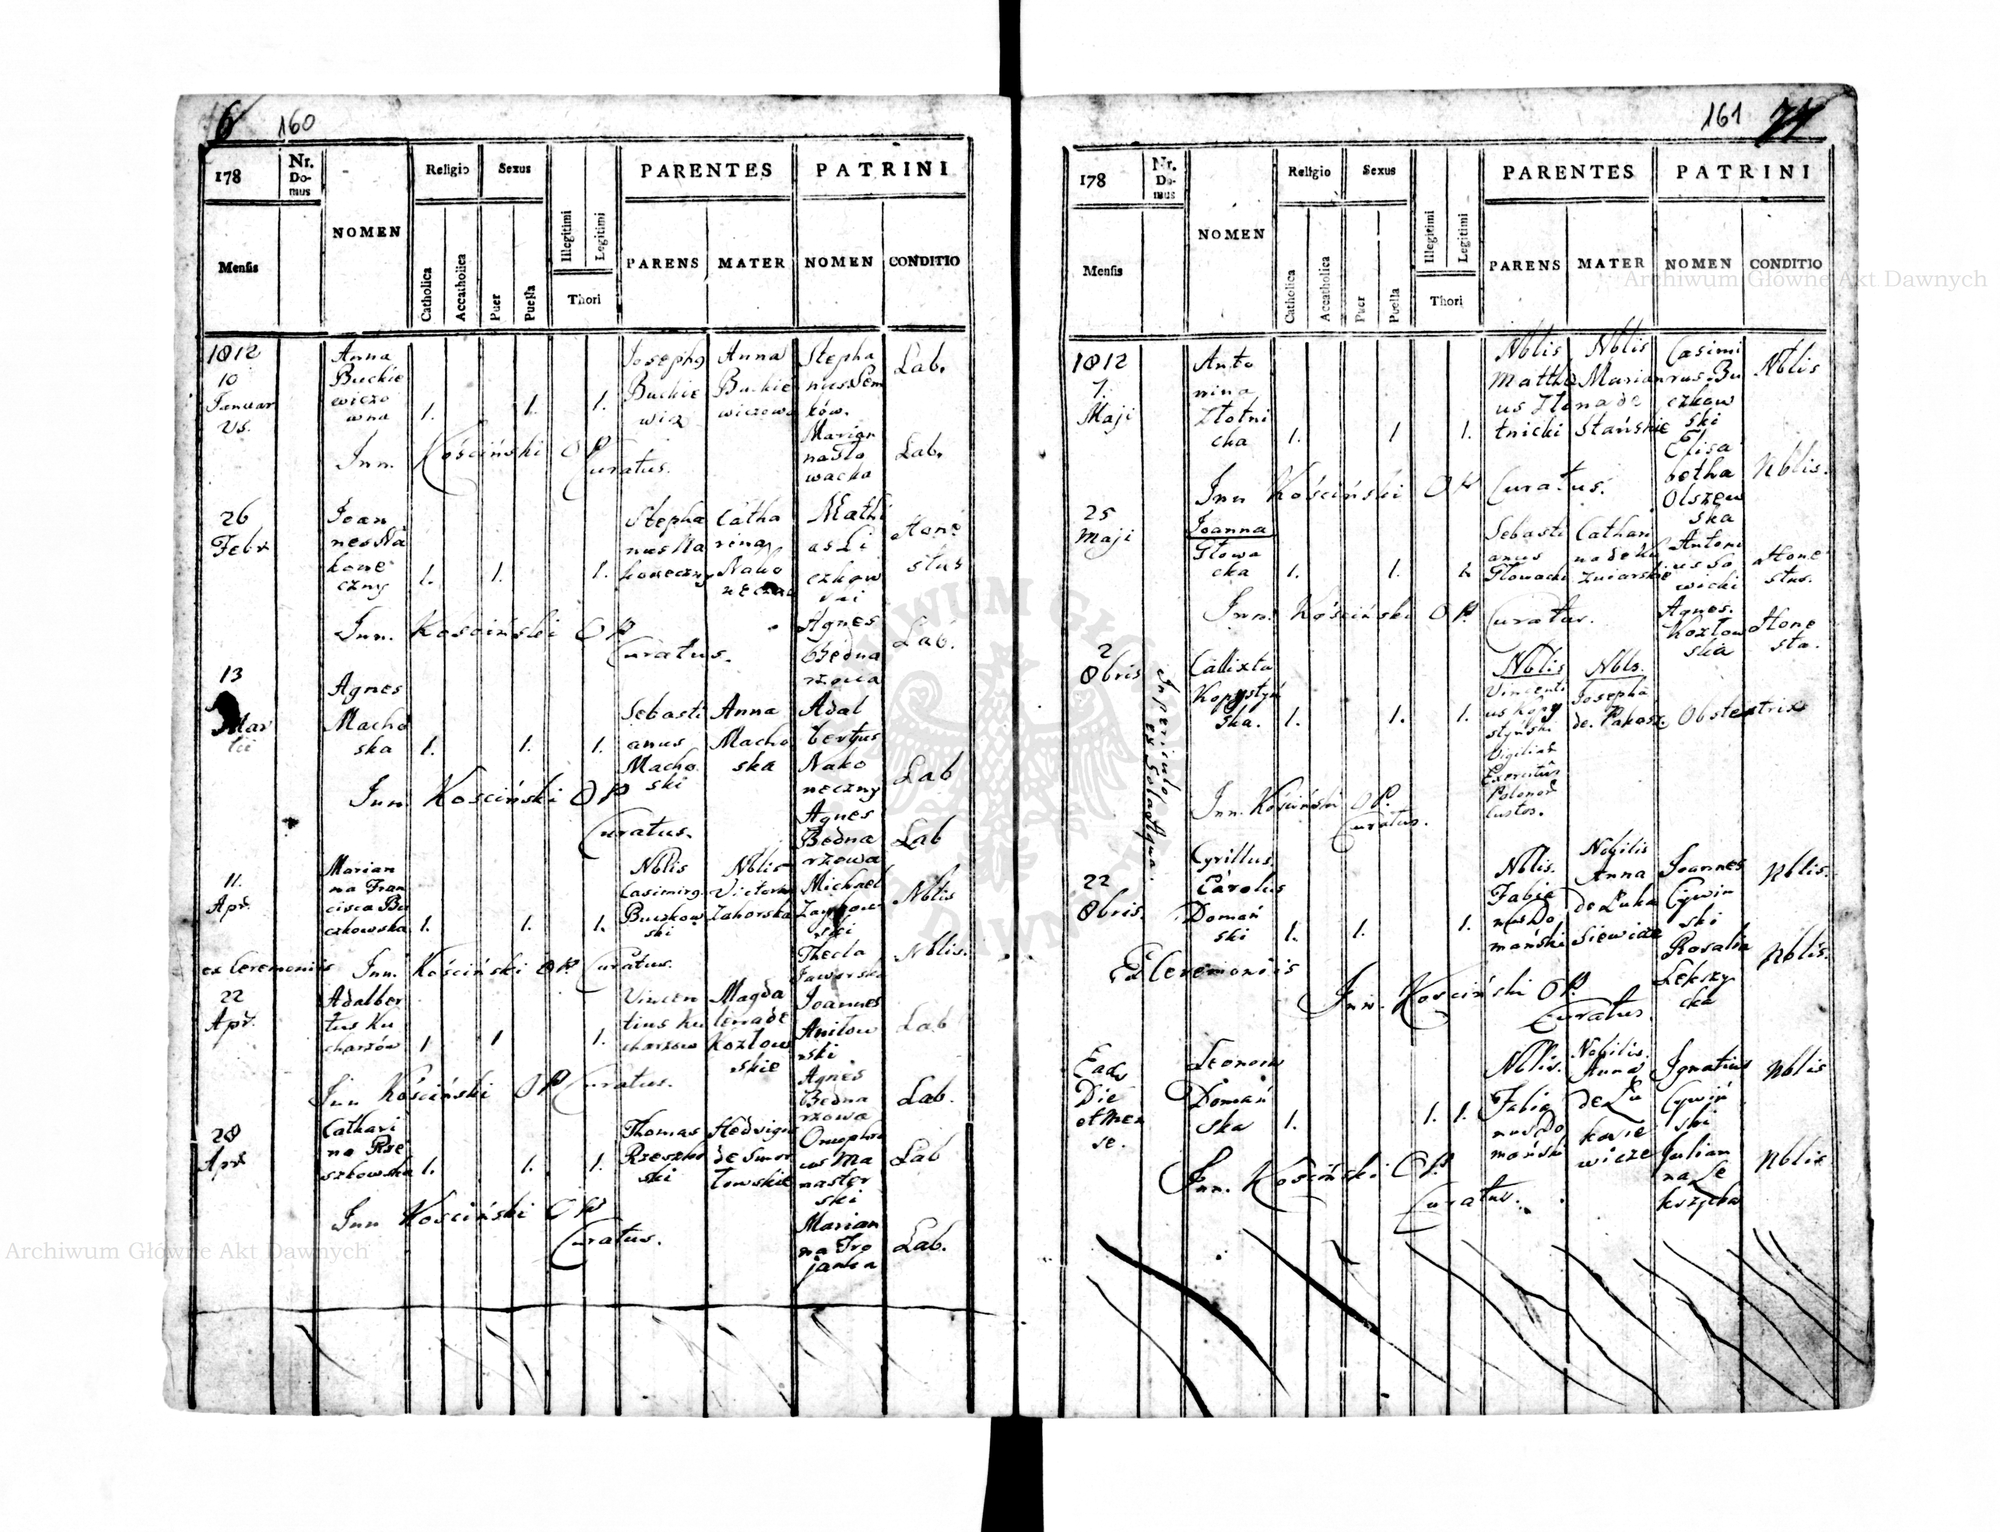 6 160
178
Nr. Domus
NOMEN
Religio
Sexus
PARENTES
PATRINI
Mensis
Catholica
Accatholica
Puer
Puella
Illegitimi
Legitimi
Thori
PARENS
MATER
NOMEN
CONDITIO
1812
10
Januar
Anna
Buckie
wiczo
wna
1. 1. 1.
Josephg
Buckie
wicz
Anna
Buckie
wiczowa
Stepha
nus Sem
ków.
Lab.
Marian
na Sło
wacka
Lab.
Inn. Kościński O P
Curatus.
26
Febr
Joan
nes Na
kone
czny
1. 1. 1.
Stepha
nus Na
koneczny
Catha
rina
Nako
Mathi
as Li
czkow
ski
Hone
stus
Agnes
Bedna
rzowa
Lab.
Inn. Kościński O P
Curatus.
13
Mar
tii
Agnes
Macho
ska
1. 1. 1.
Sebasti
anus
Macho
ski
Anna
Macho
ska
Adal
bertus
Nako
neczny
Lab
Agnes
Bedna
rzowa
Lab
Inn. Kościński O P
Curatus.
11.
Apr.
Marian
na Fran
cisca Bu
czkowska
1. 1. 1.
Nblis
Casimirg
Buczkow
ski
Nblis
Victoria
Zahorska
Michael
ski
Nblis
Thecla
Jaworska
Nblis.
ex Ceremoniis Inn. Kościński O P Curatus.
22
Apr.
Adalber
tus Ku
charzów
1 1 1.
Vincen
tius Ku
charzow
Magda
lena de
Kozłow
skie
Joannes
Anitow
ski
Lab
Agnes
Bedna
rzowa
Lab.
Inn Kościński O P Curatus.
28
Apr
Cathari
na Rze
szkowska
1. 1. 1.
Thomas
Rzeszko
ski
Hedvigis
de Smor
łowskie
Onophri
us Ma
naster
ski
Lab
Marian
na Tro
janka
Lab.
Inn Kościński O P
Curatus.
161
178
Nr. Domus
NOMEN
Religio
Sexus
PARENTES
PATRINI
Mensis
Catholica
Accatholica
Puer
Puella
Illegitimi
Legitimi
Thori
PARENS
MATER
NOMEN
CONDITIO
1812
7.
Maji
Anto
nina
Złotni
cka
1. 1 1.
Nblis
Matthæ
us Zło
tnicki
Nblis
Marian
na de
Stańskie
Casimi
rus Bu
czkow
ski
Nblis
Elisa
betha
Olszew
ska
Nblis.
Inn Kościński O P Curatus.
25
Maji
Joanna
Głowa
cka
1. 1. 1.
Sebasti
anus
Głowacki
Cathari
na de Ku
źniarskie
Antoni
us Sa
wicki
Hone
stus.
Agnes.
Kozłow
ska
Hone
sta.
Inn. Kościński O P. Curatus.
2
8bris
In periculo
ex sola Aqua
Callixta
Kopystyń
ska.
1. 1. 1.
Nblis
Vincenti
us Kopy
styński
Vigiliar
Exercitus
Polonor
Custos.
Nbls.
Josepha
de Pakosz
Obstetrix
Inn. Kościński O P.
Curatus.
22
8bris.
Cyrillus
Carolus
Domań
ski
1. 1. 1.
Nblis.
Fabia
nus Do
mański
Nobilis
Anna
de Luka
siewicze
Joannes
Cywin
ski
Nblis.
Rosalia
Lekszy
cka
Nblis.
Ex Ceremoniis
Inn. Kościński O P.
Curatus.
Eade
Die
et Men
se.
Leonora
Domań
ska
1. 1. 1.
Nblis.
Fabia
nus Do
mański
Nobilis.
Anna
de Lu
kasie
wicze
Ignatius
Cywiń
ski
Nblis
Julian
na Le
kszycka
Nblis
Inn. Kościński O P.
Curatus.
Archiwum Główne Akt Dawnych
Archiwum Główne Akt Dawnych